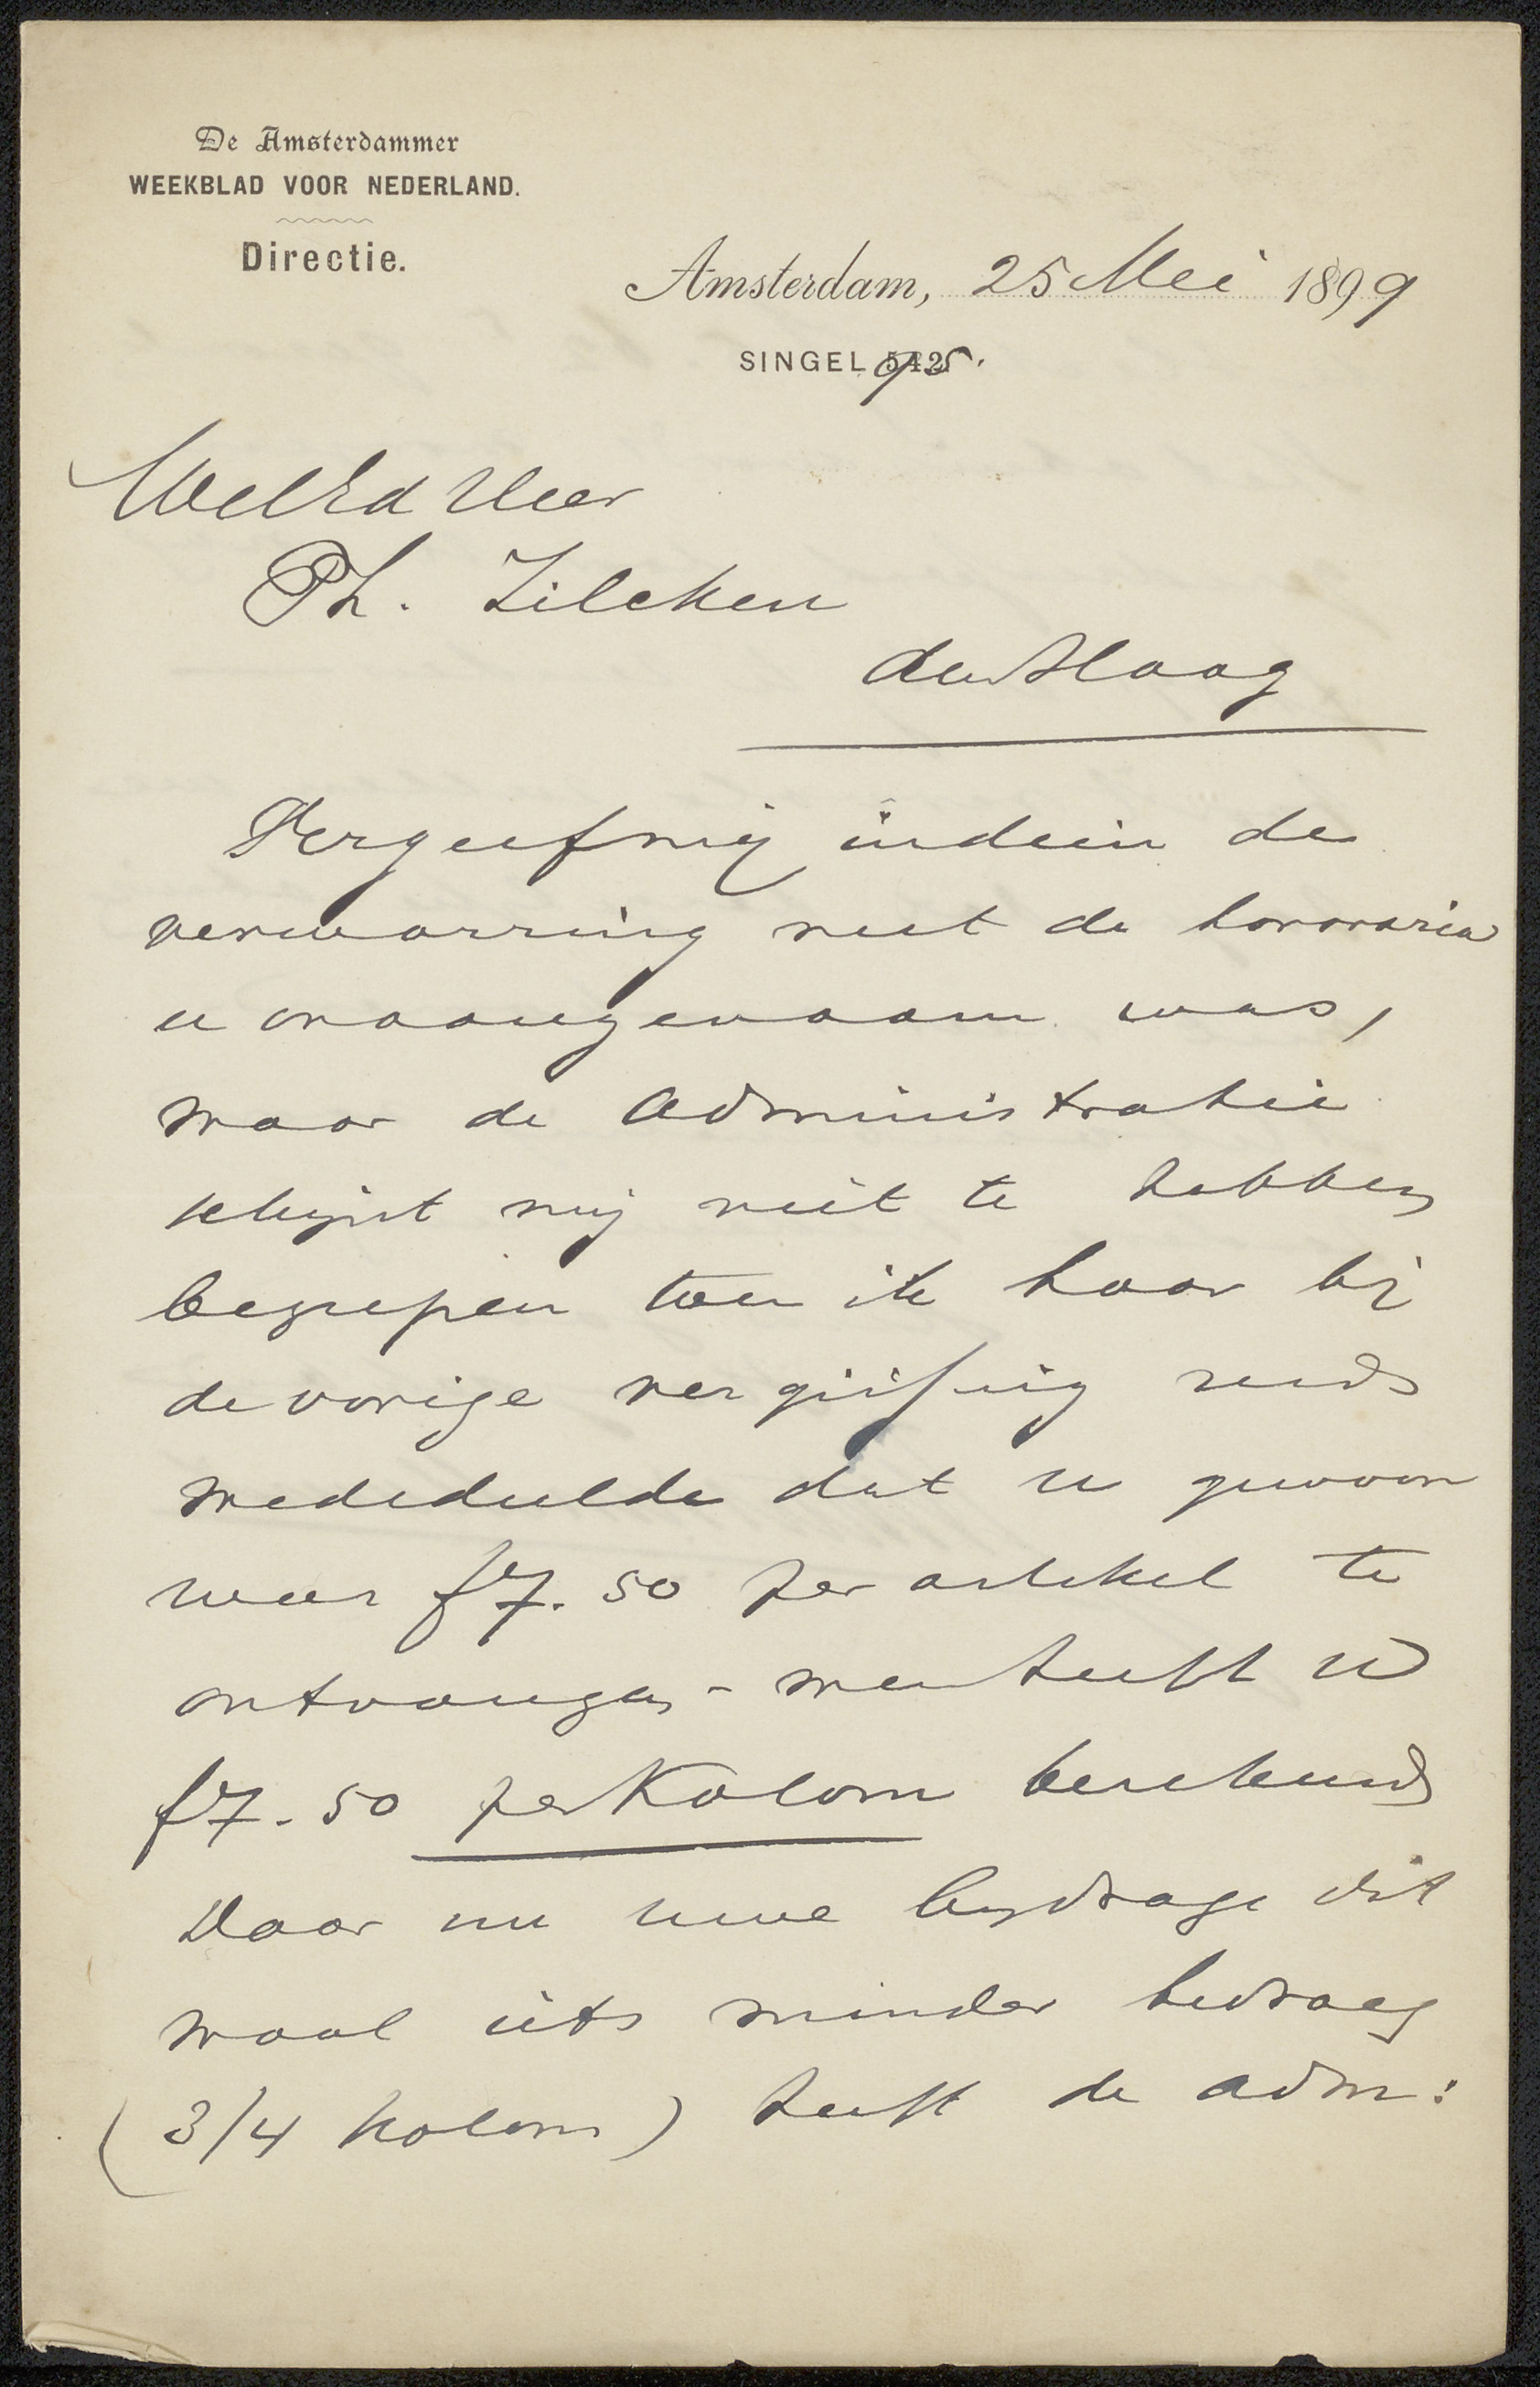 De Amsterdammer
WEEKBLAD VOOR NEDERLAND.
Directie.
Amsterdam, 25 Mei 1899
SINGEL
WelEd Heer
Ph. Zilcken
den Haag
Vergeef mij indien de
verwarring met de honoraria
u onaangenaam was,
maar de administratie
schijnt mij niet te hebben
begrepen toen ik haar bij
de vorige vergissing reeds
mededeelde dat u gewoon
was f7.50 per artikel te
ontvangen - men heeft U
f7.50 per Kolom berekend
Daar nu uwe bijdrage dit
maal iets minder bedraag
(3/4 kolom) heeft de adm: